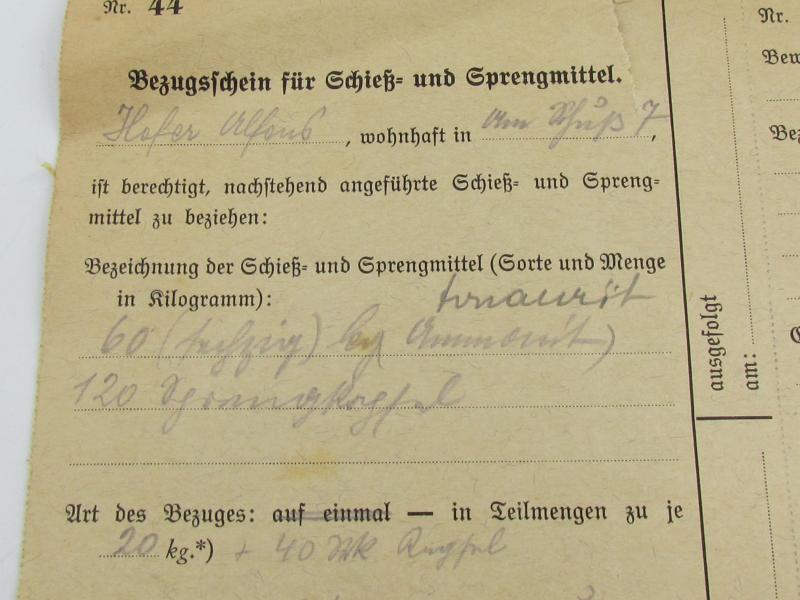 Nr. 44
Bezugsschein für Schieß- und Sprengmittel.
Hofer Alfons, wohnhaft in Am 7,
ist berechtigt, nachstehend angeführte Schieß- und Spreng-
mittel zu beziehen:
Bezeichnung der Schieß- und Sprengmittel (Sorte und Menge
in Kilogramm):
60 (sechzig) kg Ammonit)
120 Sprengkapsel
Art des Bezuges: auf einmal — in Teilmengen zu je
20 kg.*) + 40 Kapsel
ausgefolgt
am:
Nr.
Bew
Bez